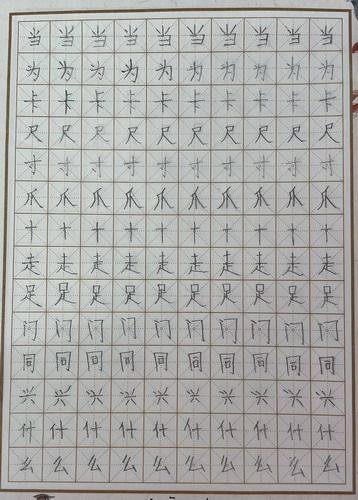 当当当当当当当当当当
为为为为为为为为为为
卡卡卡卡卡卡卡卡卡卡
尺尺尺尺尺尺尺尺尺尺
寸寸寸寸寸寸寸寸寸寸
爪爪爪爪爪爪爪爪爪爪
十十十十十十十十十十
走走走走走走走走走走
足足足足足足足足足足
门门门门门门门门门门
同同同同同同同同同同
兴兴兴兴兴兴兴兴兴兴
什什什什什什什什什什
么么么么么么么么么么